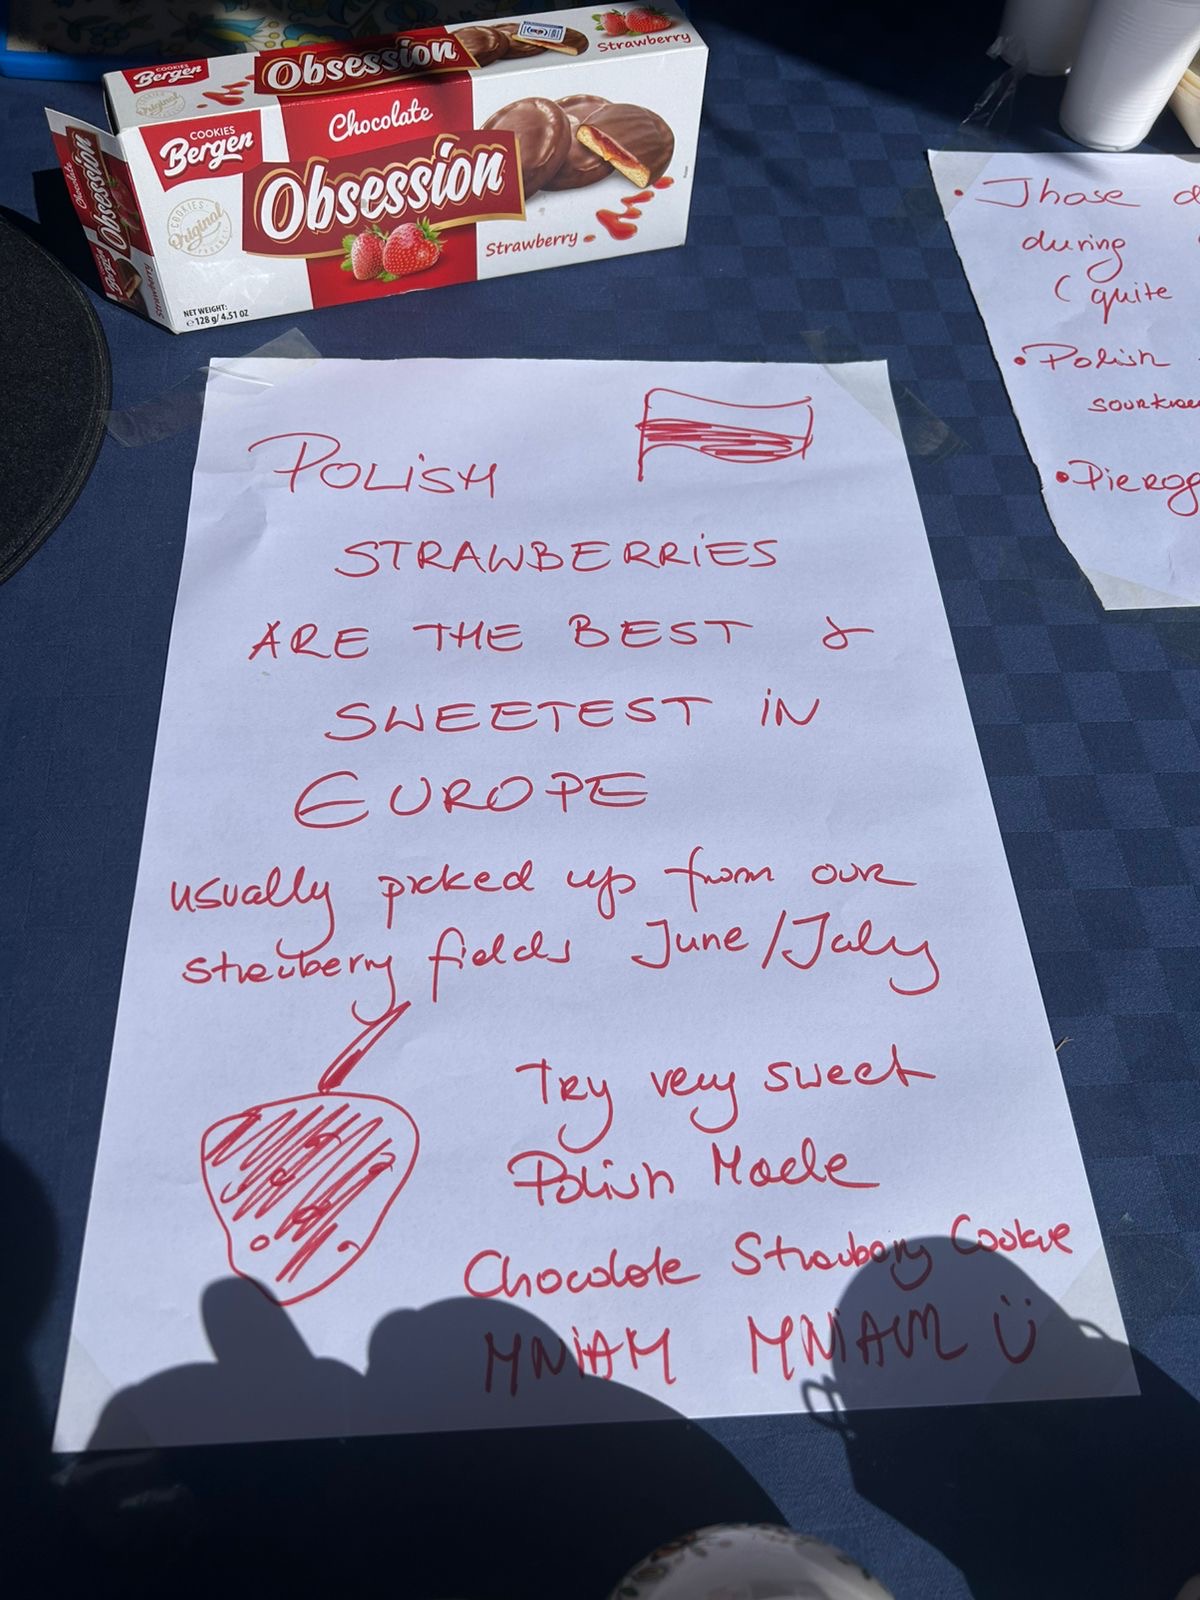 COOKIES
Bergen
Original
Obsession
Strawberry
COOKIES
Bergen
Chocolate
Obsession
COOKIES
Original
Strawberry
NET WEIGHT:
℮128 g/ 4.51 OZ
Chocolate
Obsession
Bergen
Strawberry
POLiSH
STRAWBERRiES
ARE THE BEST &
SWEETEST iN
EUROPE
usually picked up from our
strawberry fields June/July
Try very sweet
Polish Made
Chocolate Strawberry Cookie
MNiAM MNiAM Ü
• Those
during
( quite
• Polish
• Pierog